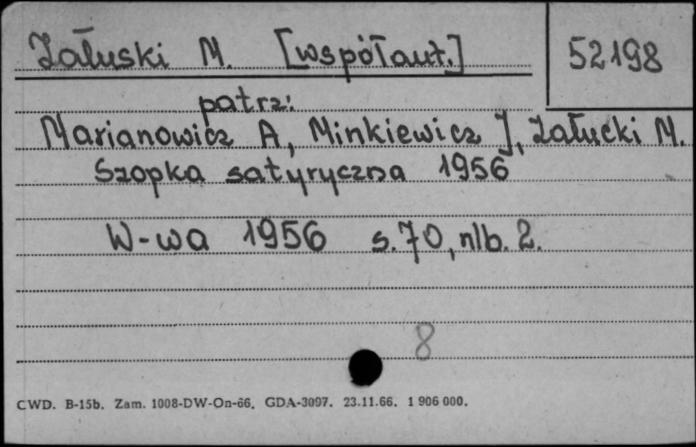 Załuski M. [współaut.]
52198
patrz:
Marianowicz A, Minkiewicz J, Załucki M.
Szopka satyryczna 1956
W-wa 1956 s.70, nlb. 2.
8
CWD. B-15b. Zam. 1008-DW-On-66. GDA-3097. 23.11.66. 1 906 000.